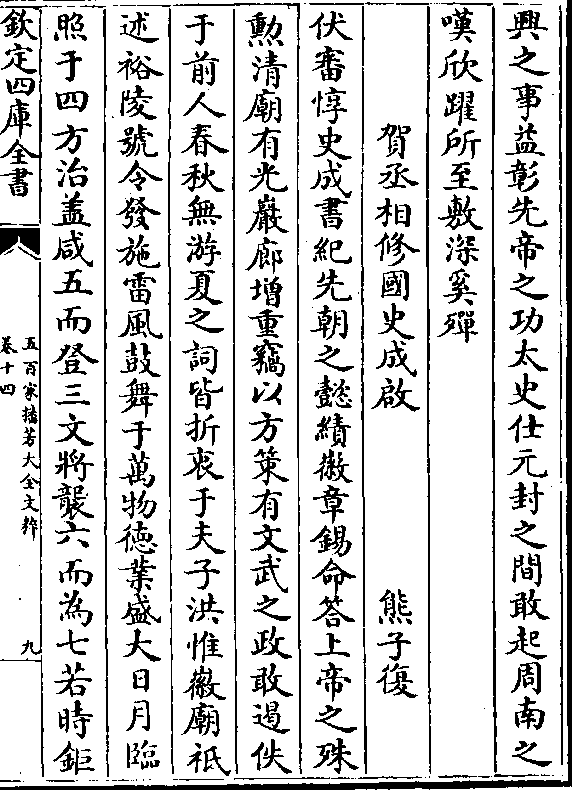 興之事益彰先帝之功太史仕元封之間敢起周南之
嘆欣躍所至敷深奚殫
賀丞相修國史成啟　熊子復
伏審惇史成書紀先朝之懿績徽章錫命答上帝之殊
勲清廟有光巖廊增重竊以方策有文武之政敢遏佚
于前人春秋無游夏之詞皆折衷于夫子洪惟徽廟祗
述裕陵號令發施雷風鼓舞于萬物徳業盛大日月臨
照于四方治盖咸五而登三文將襲六而為七若時鉅
欽定四庫全書
五百家播芳大全文粹
卷十四
九